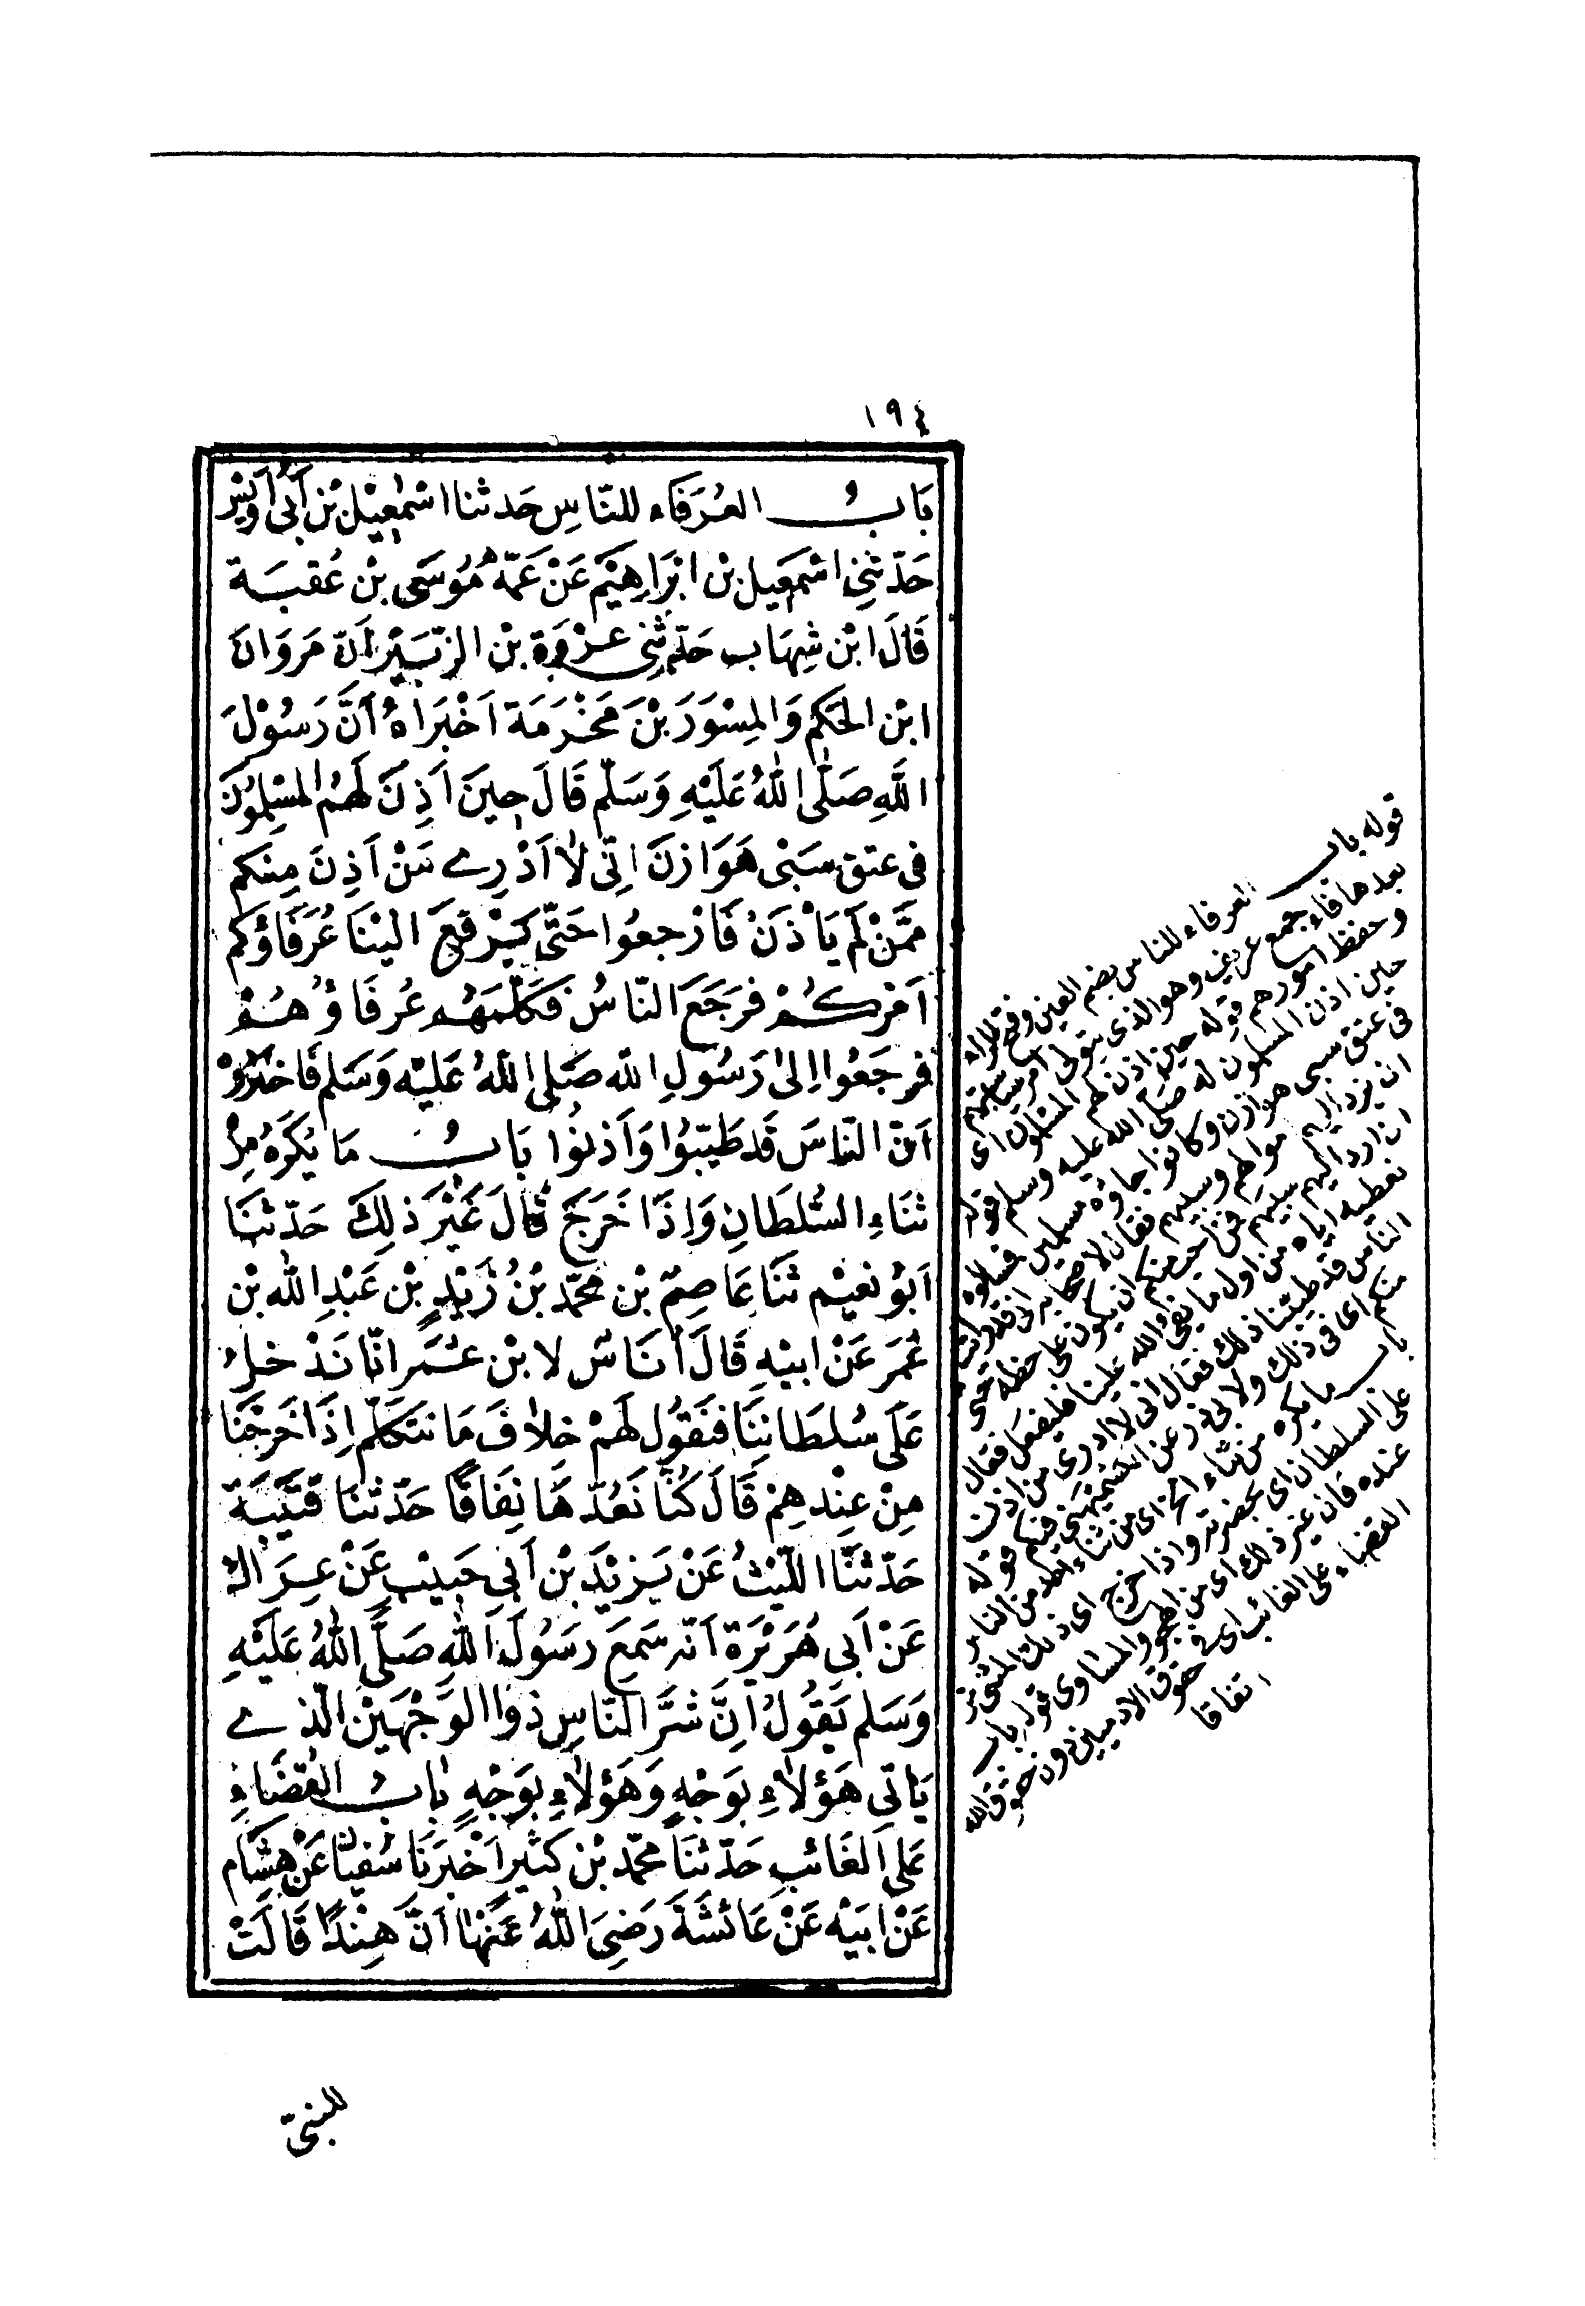 ١٩٤
بَابُ العُرَفَاء للنّاسِ حَدثنا اسْمٰعِيْل بْن أَبى أُوَيْسٍ
حَدّثنِى اسْمَعِيل بْن ابْرَاهِيْم عَنْ عَمّهِ مُوسَى بْن عُقبَة
قَالَ ابْن شِهَاب حَدّثنِى عرْوَة بْن الزّبَيْر أَنّ مَروَانَ
ابْن الحَكم وَالمِسْوَرَ بْنَ مَخْرَمَة اَخْبَرَاهُ أَنَّ رَسُوْلَ
اللَّهِ صَلّى اللّٰهُ عَلَيْهِ وَسَلّم قَالَ حِينَ اَذِنَ لَهُم المسْلِمُونَ
فى عتق سَبْى هَوَازنَ اِنّى لَا اَدْرِى مَنْ اَذِنَ مِنكم
مِمَّنْ لَم يَأْذَنْ فَارْجعُوا حَتّى يَرْفعَ الَيْنَا عُرَفَاؤكم
اَمْرَكُمْ فرَجَعَ النّاسُ فَكَلّمَهُم عُرفَاؤُهُمْ
فرجَعُوا اِلىٰ رَسُولِ الله صَلى اللهُ عَليْه وَسَلم فَاخبَرُوْهُ
اَنّ النّاسَ قَد طَيّبَوُا وَاَذنُوا بَابُ مَا يُكرَهُ مِنْ
ثَنَاءِ السُّلطَانِ وَاِذَا خَرَجَ قَالَ غَيْرَ ذلِكَ حَدّثنَا
اَبُو نعَيْم ثَنَا عَاصِمُ بْن محمّد بْنُ زَيْدٍ بْن عَبْدِ الله بْن
عُمَر عَنْ ابيْهِ قَالَ أُنَاسٌ لابْن عُمَر انّا نَدْخلُ
عَلَى سُلطَاننَا فنَقُول لَهمْ خلافَ مَا نتَكَلّم اِذَا خَرَجْنَا
مِنْ عِنْدهِمْ قَالَ كُنا نَعُدّهَا نِفَاقًا حَدّثنَا قتَيْبَة
حَدّثنَا اللّيْثُ عَنْ يَزيْدَ بْن اَبى حَبيْبٍ عَنْ عِرَاكٍ
عَنْ اَبى هُرَيْرَة اَنّه سَمَعَ رَسُولَ اللهِ صَلَّى اللّهُ عَلَيْهِ
وَسَلم يَقُولُ اِنَّ شَرَّ النّاسِ ذوُا الوَجْهَيْن الّذى
يَاتى هَؤلاءِ بوَجْهٍ وَهَؤلاءِ بوَجْهٍ بَابُ القَضَاءِ
عَلى الغَائبِ حَدّثنَا محمّد بْن كَثيْر اَخْبَرنَا سُفيٰان عَنْ هِشَام
عَنْ ابيْه عَنْ عَائشَةَ رَضِىَ اللّهُ عَنْهَا اَنَّ هِنْدًا قَالَتْ
قوله باب العرفاء للناس بضم العين وفتح الراء
بعدها فاء جمع عريف وهو الذى يتولى امر سياستهم
وحفظ امورهم قوله حين اذن لهم المسلمون اى
حين اذن المسلمون له صلى الله عليه وسلم قوله
فى عتق سبى هوازن وكانوا جاؤه مسلمين فسالوه
ان يرد اليهم اموالهم وسبيهم فقال لاصحابه انى قد رايت
ان ارد اليهم سبيهم فمن احب منكم ان يكون على حظه حتى
نعطيه اياه من اول ما يفئ الله علينا فليفعل فقال
الناس قد طيبنا ذلك فقال انى لا ادرى من اذن
منكم اى فى ذلك ولابى ذر عن الكشميهنى فيكم قوله
باب ما يكره من ثناء الخ اى من ثناء احد من الناس
على السلطان اى بحضرته واذا خرج اى ذلك المثنى من
عنده قال غير ذلك اى من الهجو والمساوى قوله باب
القضاء على الغائب اى فى حقوق الادميين دون حقوق الله
اتفاقا
للنبىّ